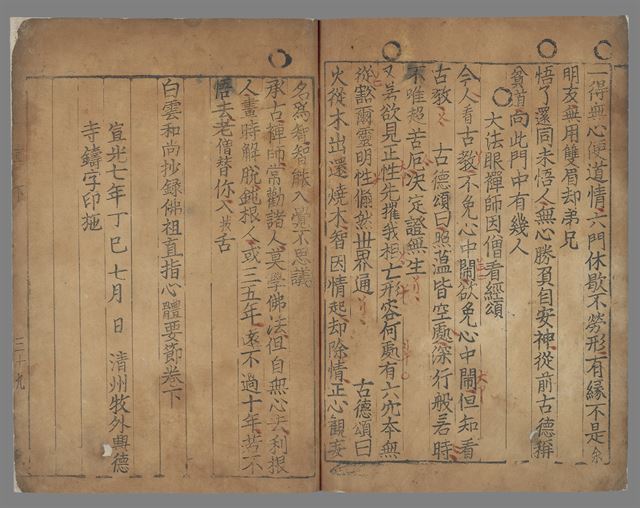 得無心便道情六門休歇不勞形有緣不是余
朋友無用雙眉却弟兄
悟了還同未悟人無心勝負自安神從前古德稱
貧道向此門中有幾人
大法眼禪師因僧看經頌
今人看古教不免心中鬧欲免心中鬧但知看
古教 古德頌曰照蘊皆空處深行般若時
不唯超苦厄决定證無生
又 若欲見正性先摧我相亡形容何處有六穴本無
從豁爾靈明性翛然世界通 古德頌曰
火從木出還燒木智因情起却除情正心觀妄
名爲智智能入覺不思議
承古禪師常勸諸人莫學佛法但自無心去利根
人晝時解脫鈍根人或三五年遠不過十年若不
悟去老僧替你入拔舌
白雲和尚抄錄佛祖直指心體要節卷下
宣光七年丁巳七月 日 清州牧外興德
寺鑄字印施
直 下
三十九